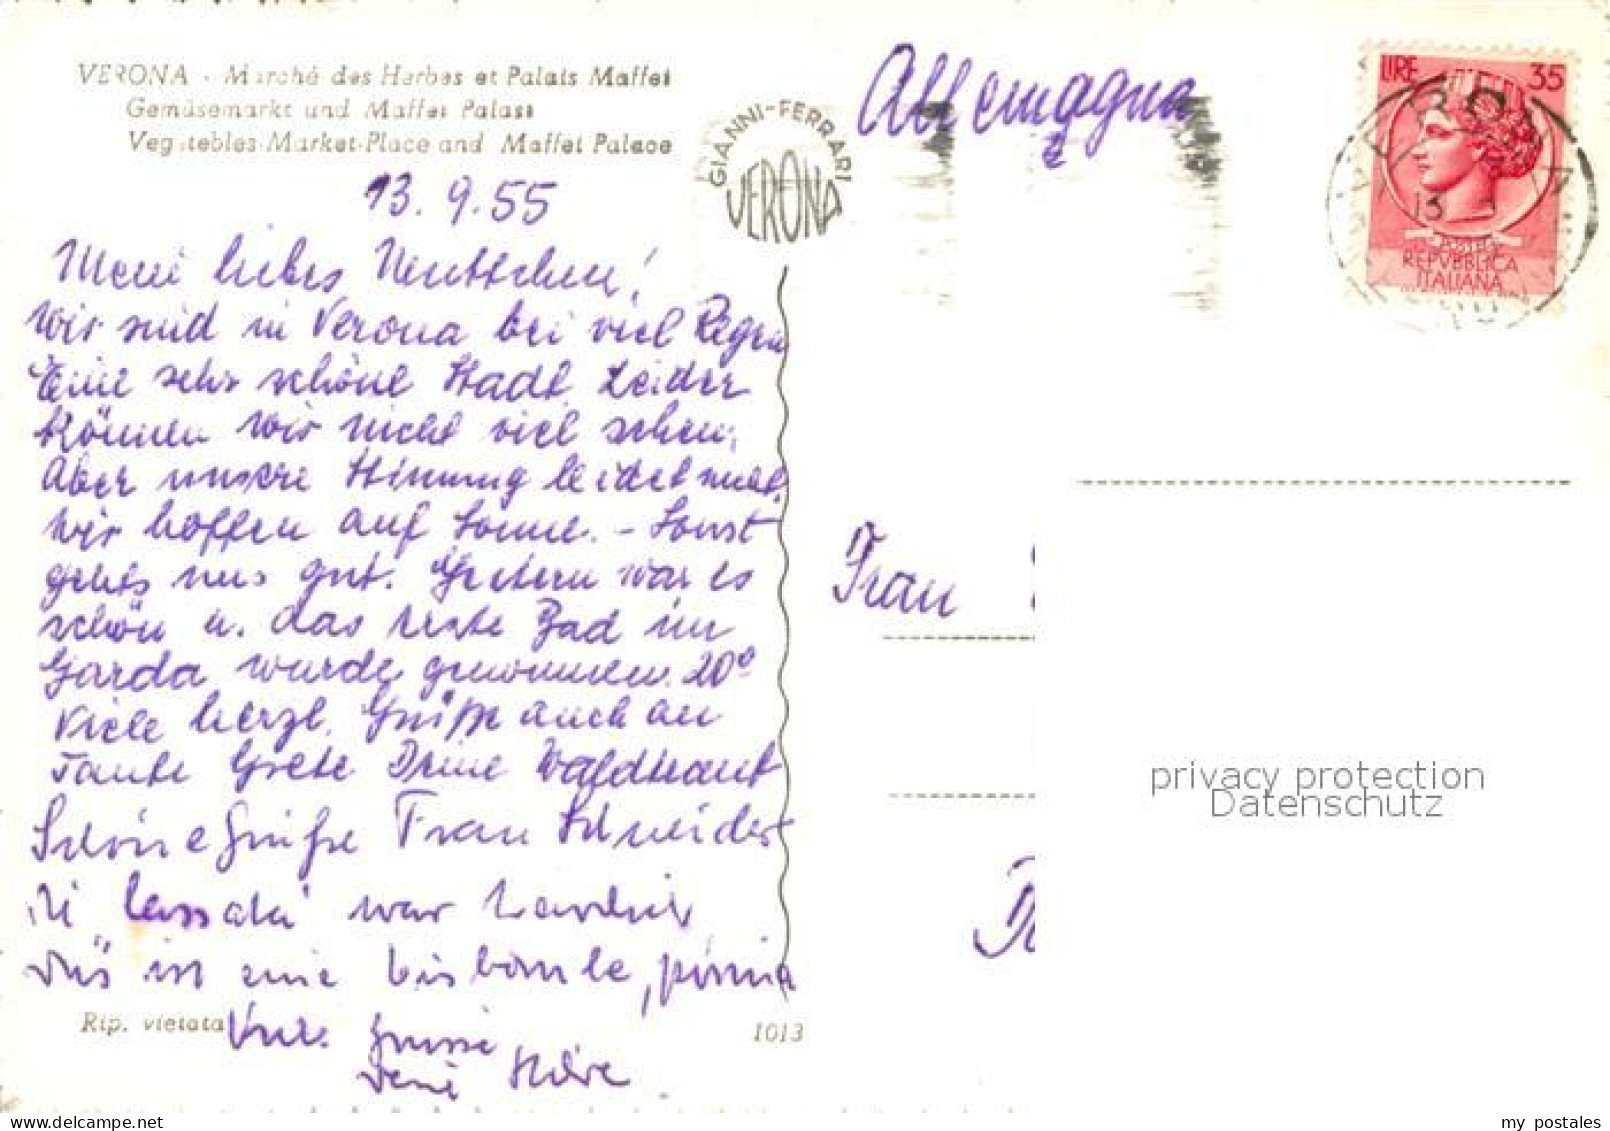 VERONA - Marché des Herbes et Palais Maffei
Gemüsemarkt und Maffei Palast
Vegetebles-Market-Place and Maffei Palace
GIANNI-FERRARI
VERONA
Allemagna
LIRE 35
POSTE
REPVBBLICA
ITALIANA
VERONA
13
13.9.55
Mein liebes Muttchen!
Wir sind in Verona bei viel Regen
Eine sehr schöne Stadt. Leider
können wir nicht viel sehen.
Aber unsere Stimmung leidet nicht.
Wir hoffen auf Sonne. - Sonst
gehts uns gut. Gestern war es
schön u. das erste Bad im
Garda wurde genommen. 20°
Viele herzl. Grüße auch an
Tante Grete Deine Waldtraut
Schöne Grüße Frau Schneider
war
ist eine prima
Viele Grüsse
Deine
Frau
Rip. vietata
1013
privacy protection
Datenschutz
my postales